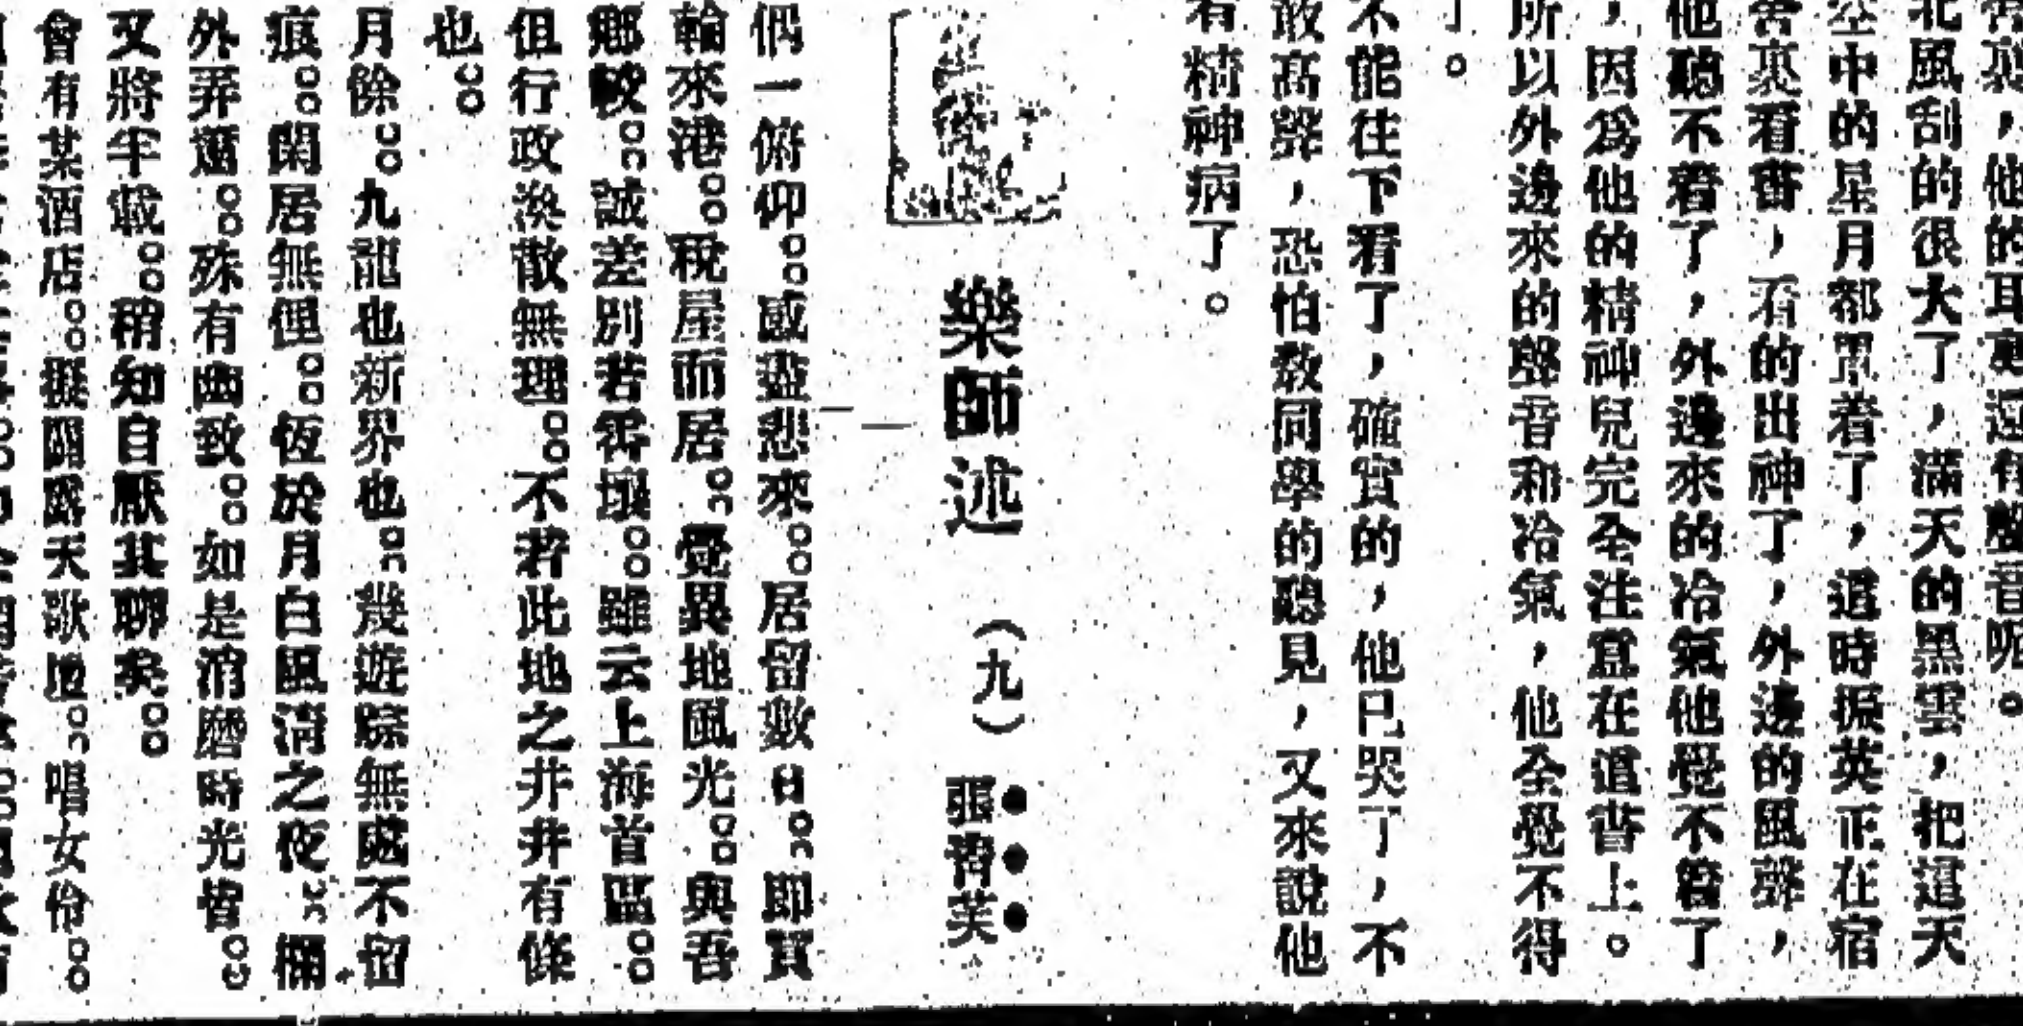 裏，他的耳裏還有聲音呢。
北風刮的很大了，滿天的黑雲，把這天
空中的星月都罩着了，這時振英正在宿
舍裏看書，看的出神了，外邊的風聲，
他聽不着了，外邊來的冷氣他覺不着了
，因爲他的精神兒完全注意在這書上。
所以外邊來的聲音和冷氣，他全覺不得
了。
不能往下看了，確實的，他已哭了，不
敢高聲，恐怕教同學的聽見，又來說他
有精神病了。
樂師述（九）
張芙
偶一俯仰。感盡悲來。居留數日。即買
輪來港。稅屋而居。覺異地風光。與吾
鄉較。誠差別若霄壤。雖云上海首區。
但行政渙散無理。不若此地之井井有條
也。
月餘。九龍也新界也。幾遊踪無處不留
痕。閑居無俚。恆於月白風清之夜。
外弄邇。殊有幽致。如是消磨時光皆。
又將半載。稍知自厭其聊矣。
會有某酒店。擬闢露天歌壇。唱女伶。